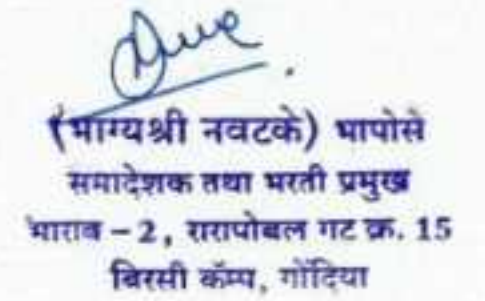 (भाग्यश्री नवटके) भापोसे
समादेशक तथा भरती प्रमुख
भाराब – 2, रारापोबल गट क्र. 15
बिरसी कॅम्प, गोंदिया